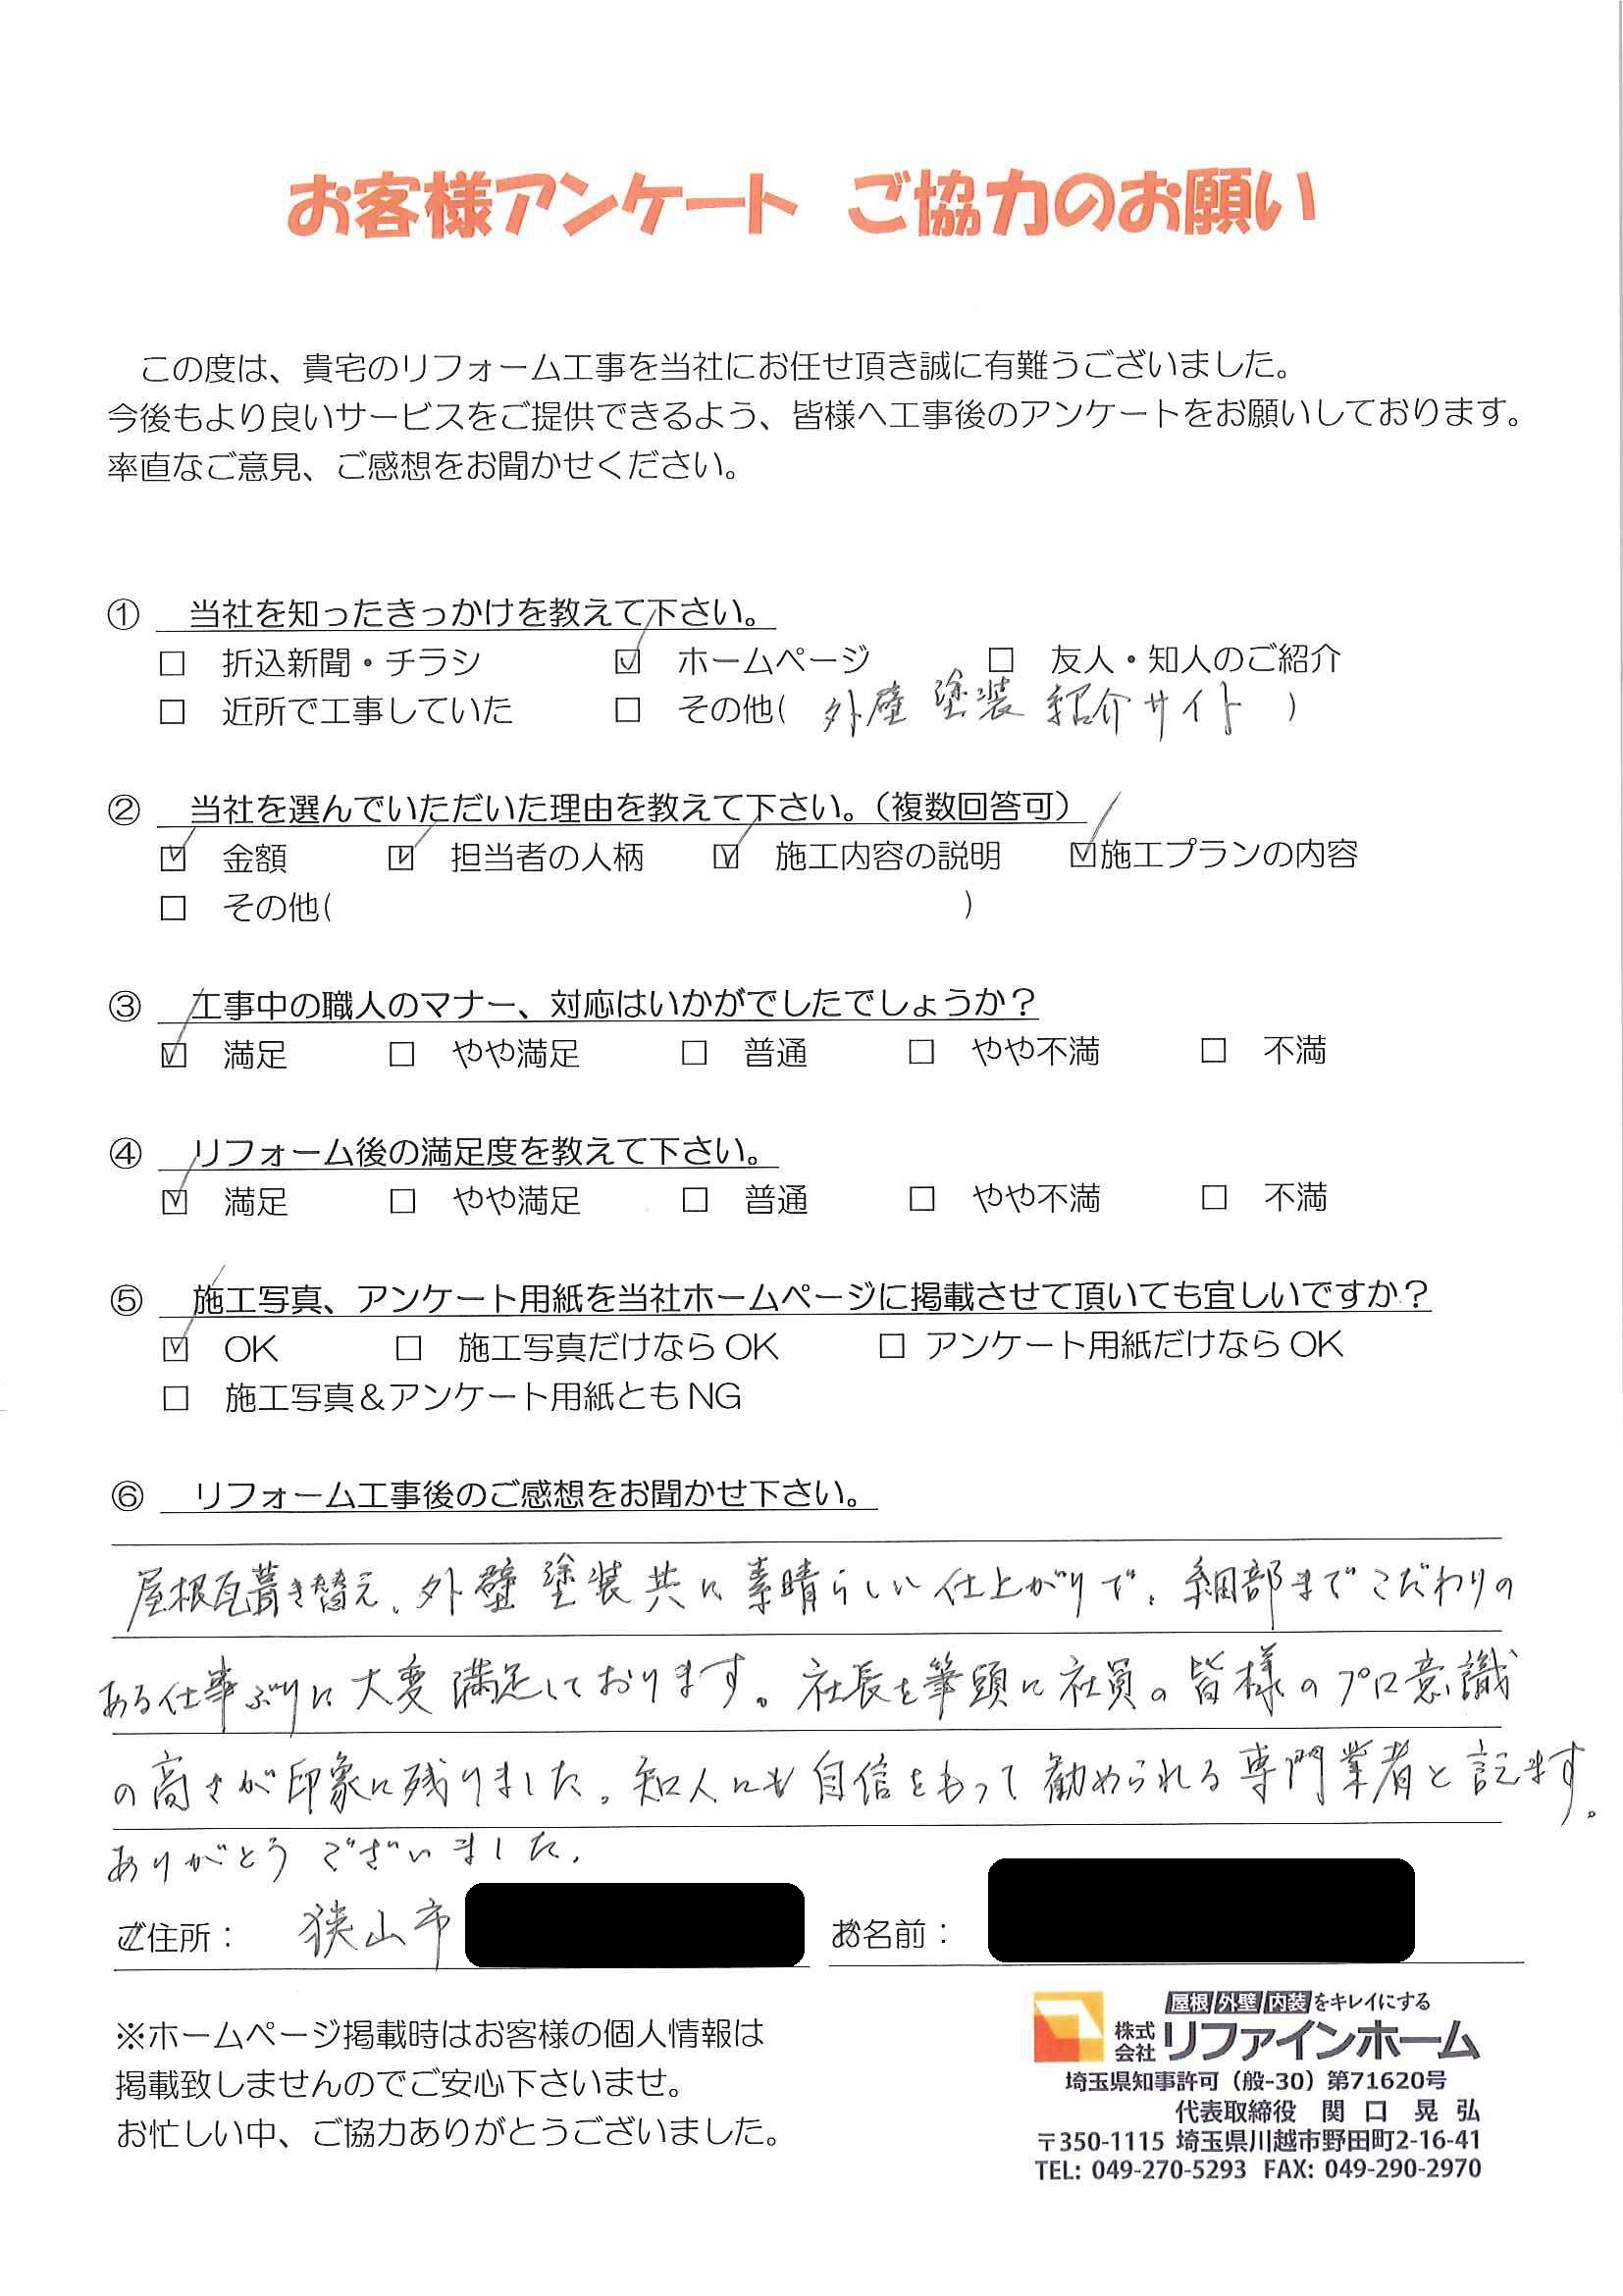 お客様アンケート ご協力のお願い
この度は、貴宅のリフォーム工事を当社にお任せ頂き誠に有難うございました。
今後もより良いサービスをご提供できるよう、皆様へ工事後のアンケートをお願いしております。
率直なご意見、ご感想をお聞かせください。
① 当社を知ったきっかけを教えて下さい。
□ 折込新聞・チラシ ☑ ホームページ □ 友人・知人のご紹介
□ 近所で工事していた □ その他( 外壁塗装紹介サイト )
② 当社を選んでいただいた理由を教えて下さい。(複数回答可)
☑ 金額 ☑ 担当者の人柄 ☑ 施工内容の説明 ☑施工プランの内容
□ その他( )
③ 工事中の職人のマナー、対応はいかがでしたでしょうか?
☑ 満足 □ やや満足 □ 普通 □ やや不満 □ 不満
④ リフォーム後の満足度を教えて下さい。
☑ 満足 □ やや満足 □ 普通 □ やや不満 □ 不満
⑤ 施工写真、アンケート用紙を当社ホームページに掲載させて頂いても宜しいですか?
☑ OK □ 施工写真だけなら OK □ アンケート用紙だけなら OK
□ 施工写真&アンケート用紙とも NG
⑥ リフォーム工事後のご感想をお聞かせ下さい。
屋根瓦葺き替え、外壁塗装共に素晴らしい仕上がりで、細部までこだわりの
ある仕事ぶりに大変満足しております。社長を筆頭に社員の皆様のプロ意識
の高さが印象に残りました。知人にも自信をもって勧められる専門業者と言えます。
ありがとうございました。
ご住所: 狭山市 お名前:
※ホームページ掲載時はお客様の個人情報は
掲載致しませんのでご安心下さいませ。
お忙しい中、ご協力ありがとうございました。
屋根 外壁 内装 をキレイにする
株式会社 リファインホーム
埼玉県知事許可(般-30)第71620号
代表取締役 関口 晃弘
〒350-1115 埼玉県川越市野田町2-16-41
TEL: 049-270-5293 FAX: 049-290-2970